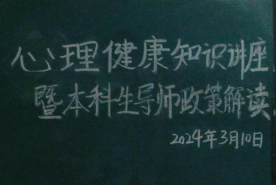 心理健康知识讲座
暨本科生导师政策解读
2024年3月10日